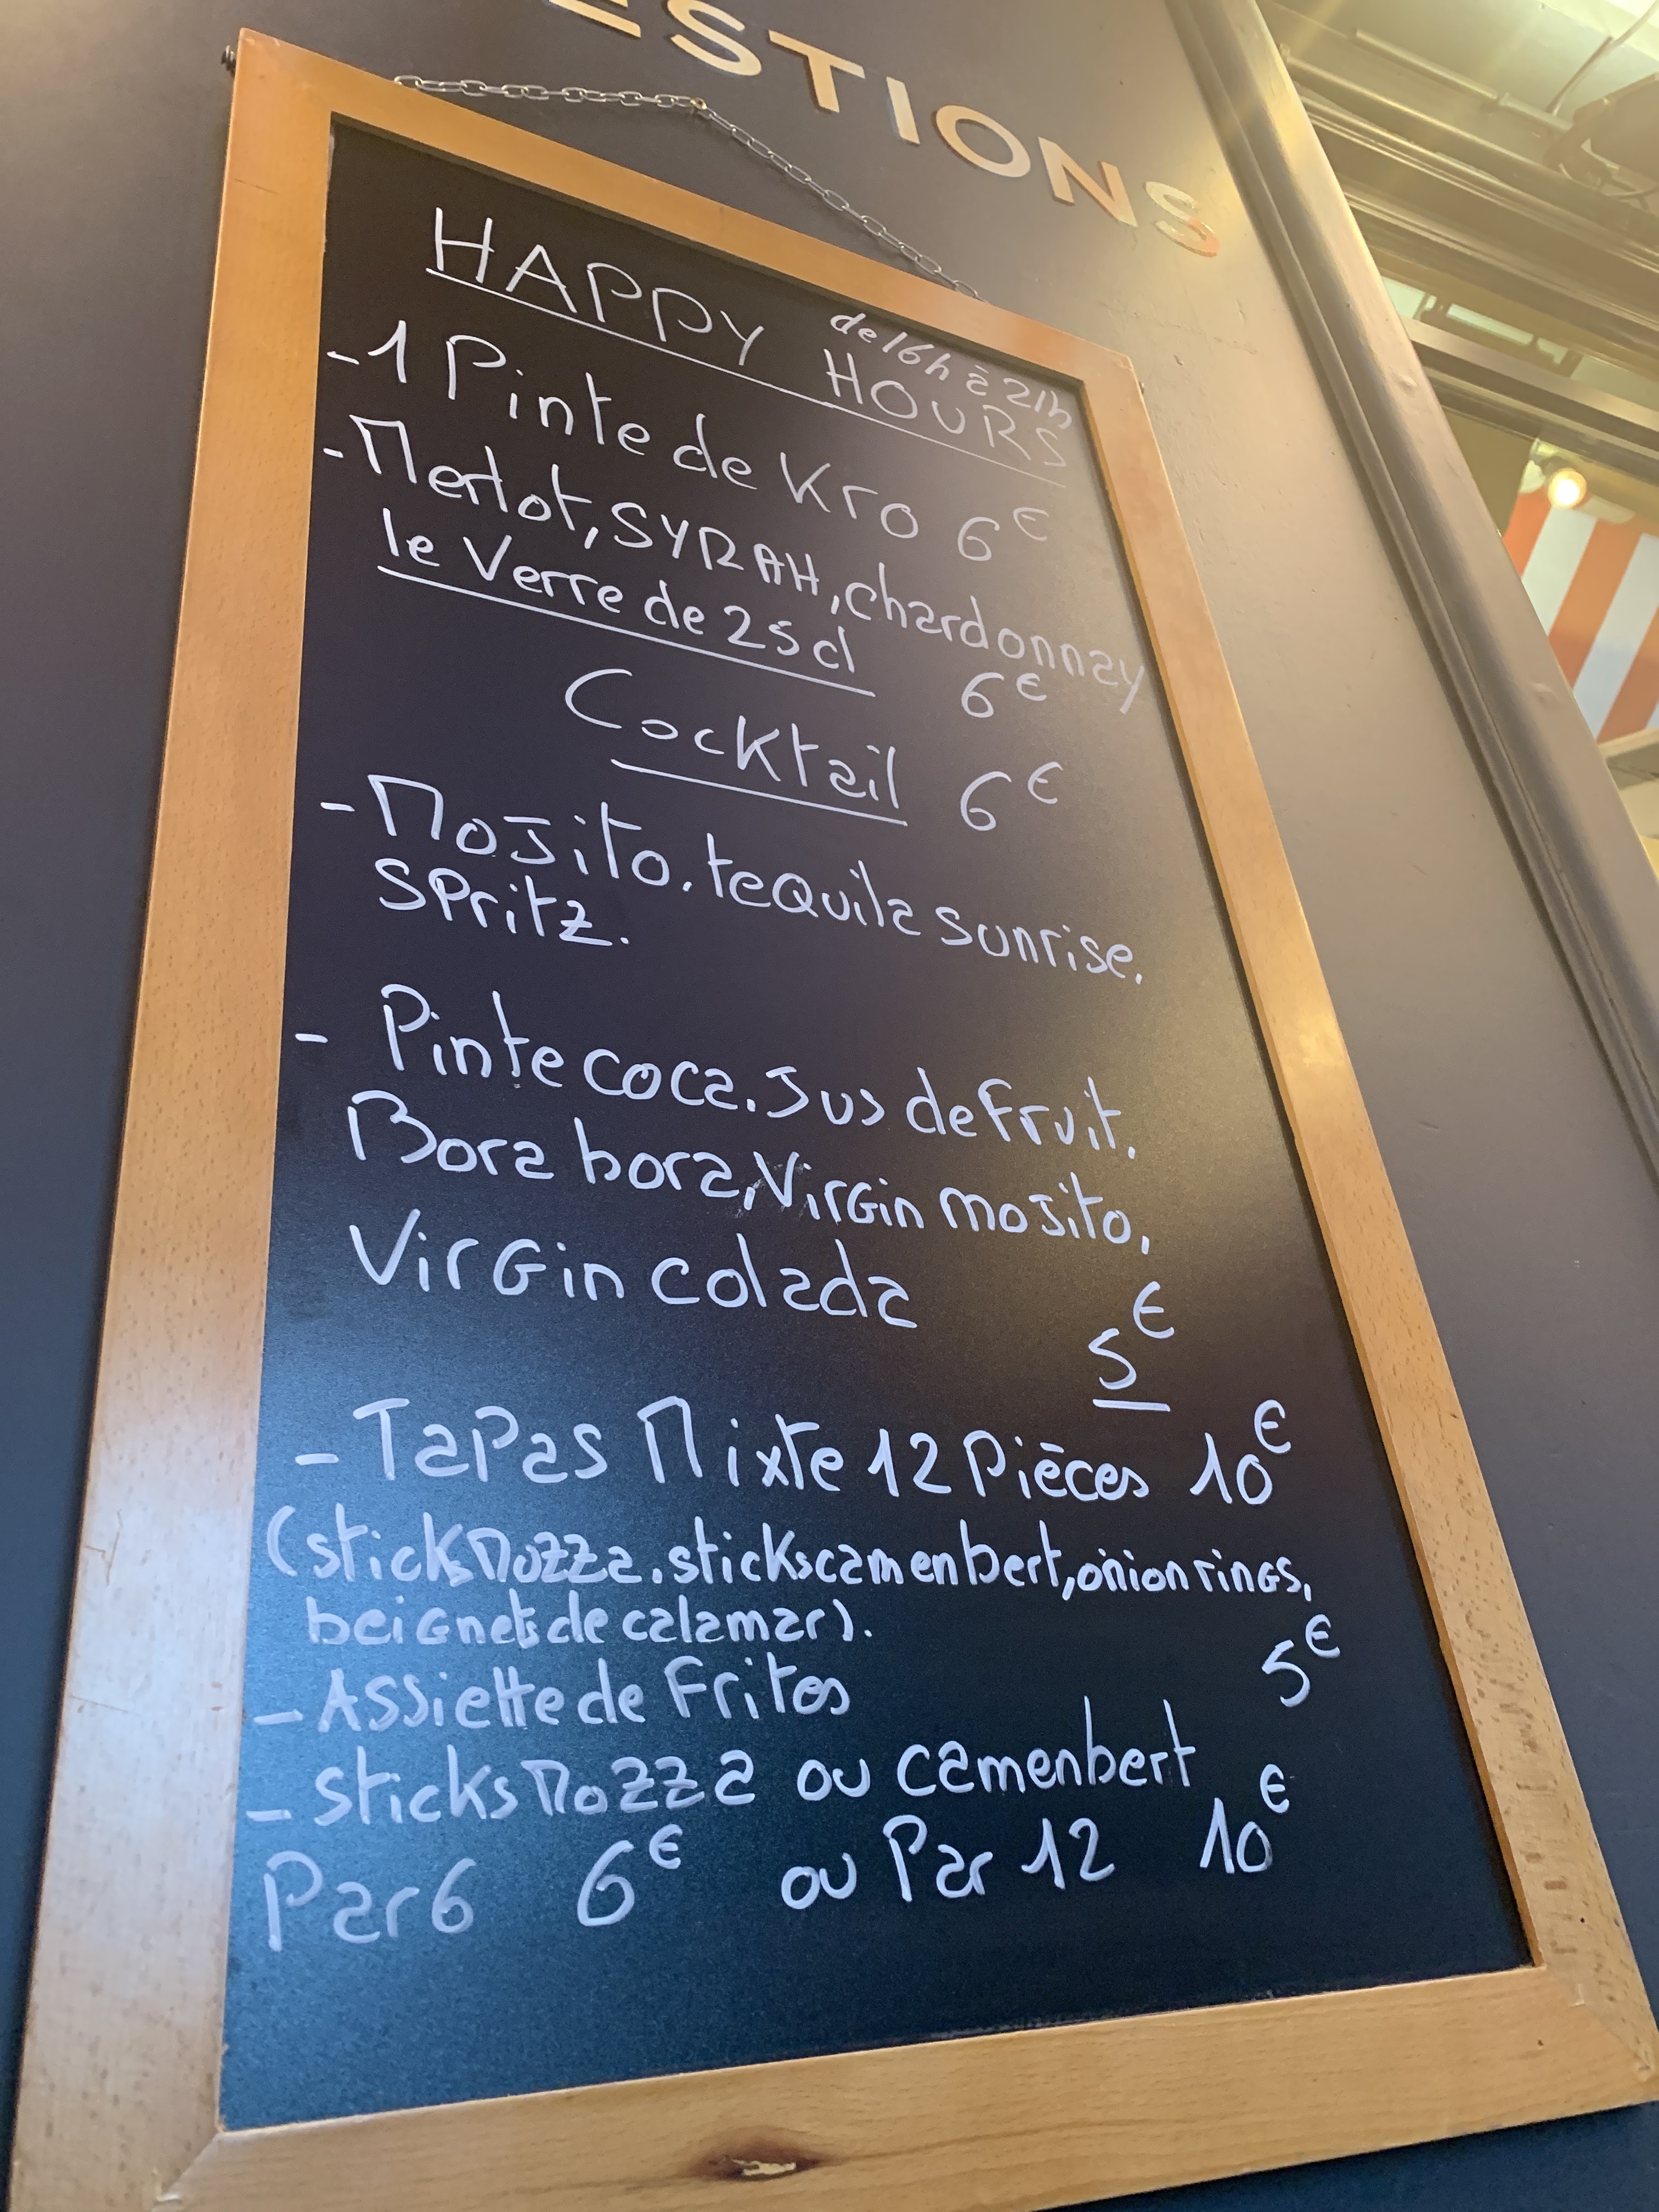 ESTIONS
HAPPY HOURS de 16h à 21h
- 1 Pinte de Kro 6€
- Merlot, SYRAH, chardonnay
le Verre de 25cl 6€
Cocktail 6€
- Mojito. tequila sunrise.
Spritz.
- Pinte coca. Jus de fruit.
Bora bora, Virgin mojito,
Virgin colada
5€
- Tapas Mixte 12 Pièces 10€
(sticks Mozza. sticks camenbert, onion rings,
beignets de calamar).
- Assiette de Frites 5€
- sticks Mozza ou camenbert
Par 6 6€ ou Par 12 10€